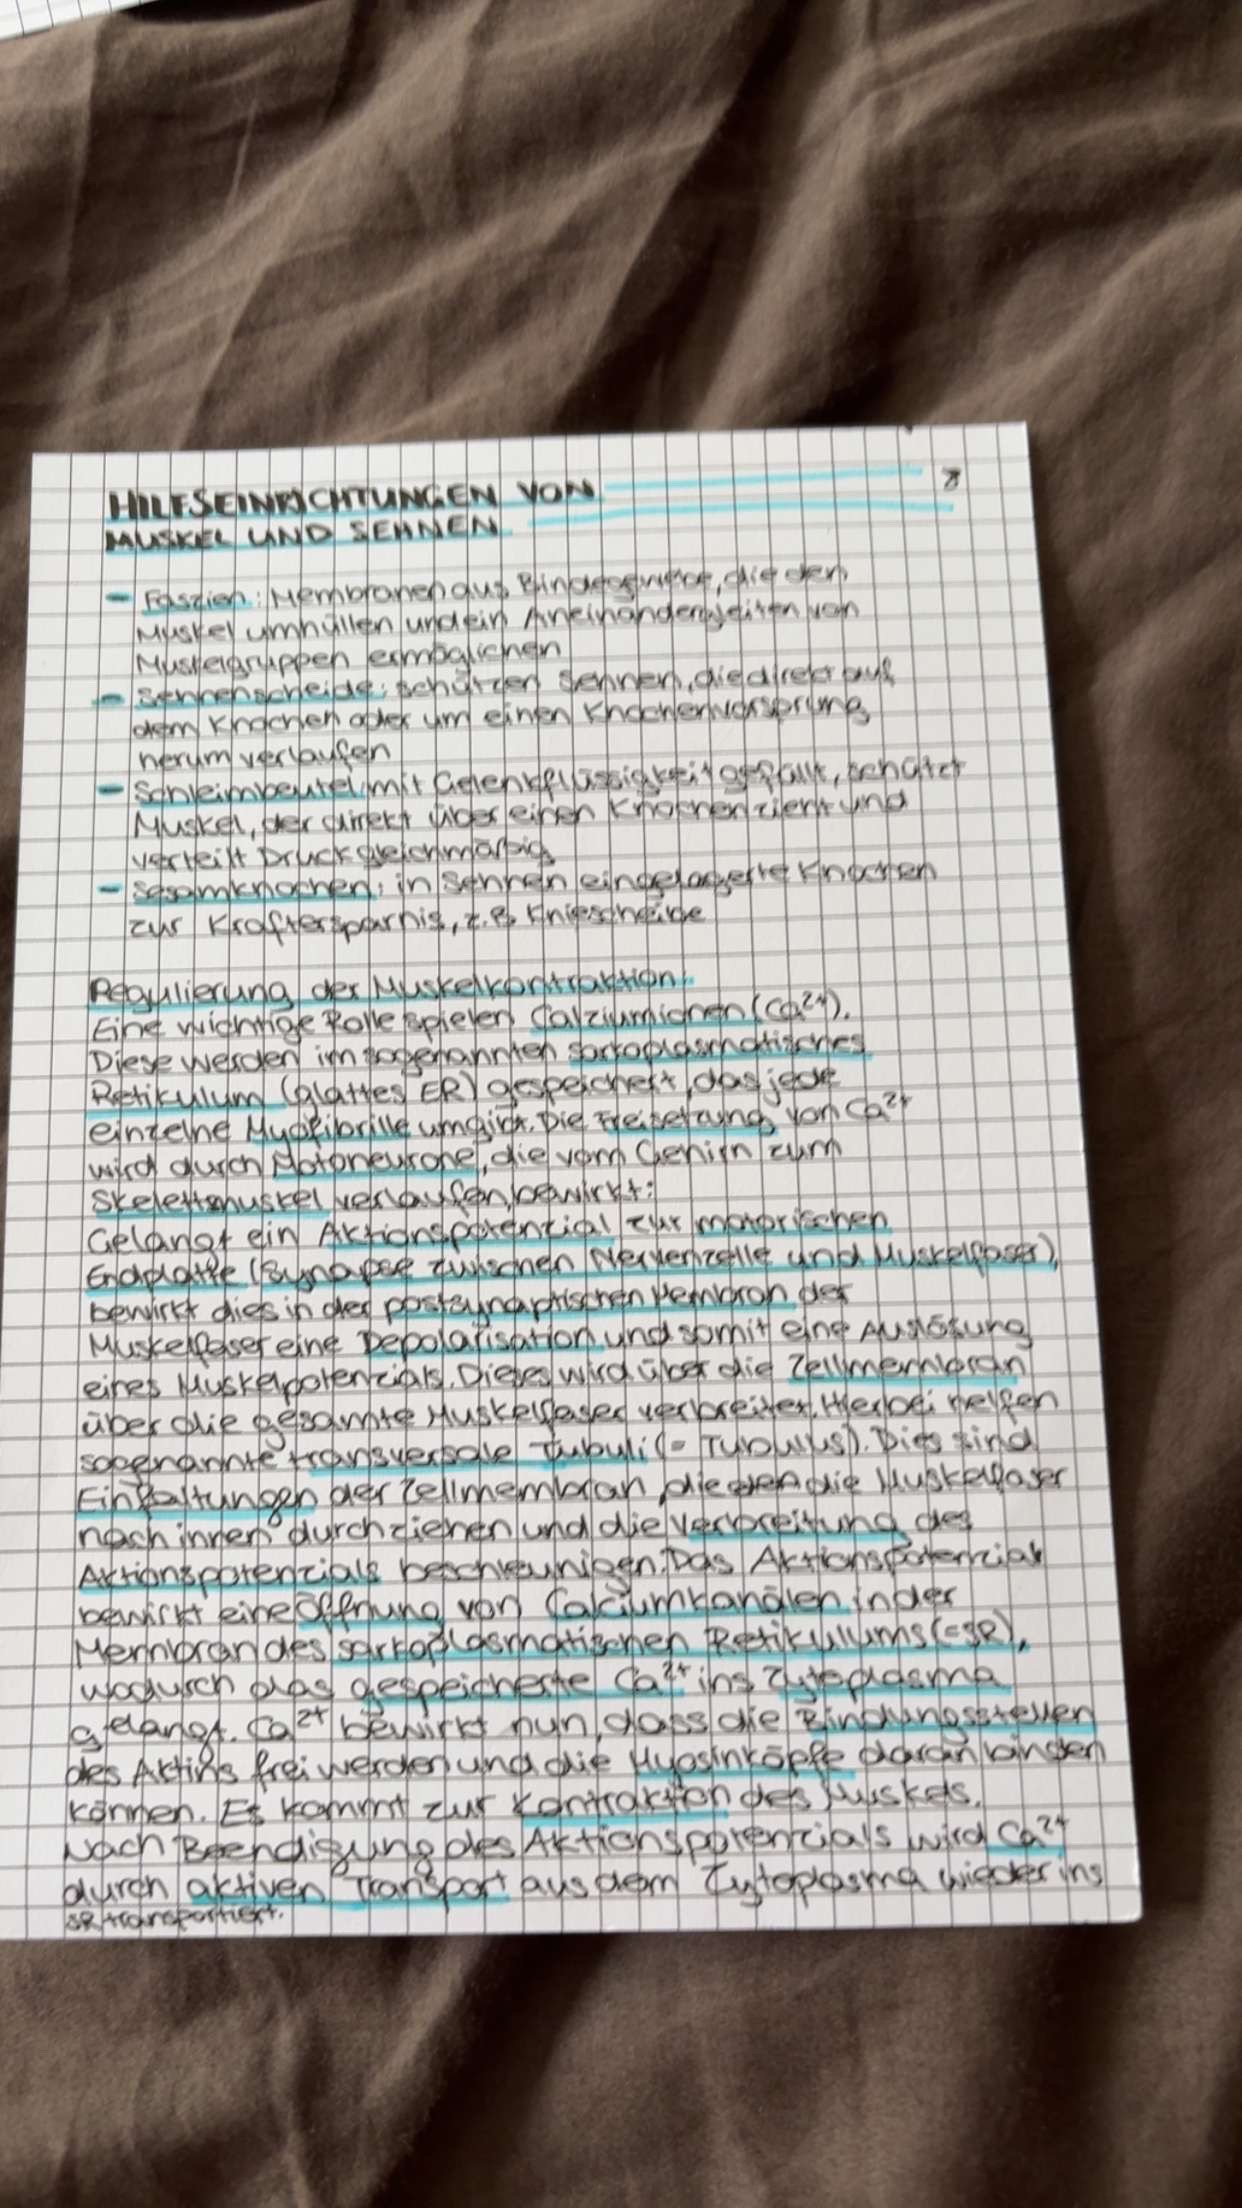 HILFSEINRICHTUNGEN VON
8
MUSKEL UND SEHNEN
- Faszien: Membranen aus Bindegewebe, die den
Muskel umhüllen und ein Aneinandergleiten von
Muskelgruppen ermöglichen
- Sehnenscheide: schützen Sehnen, die direkt auf
dem Knochen oder um einen Knochenvorsprung
herum verlaufen
- Schleimbeutel: mit Gelenkflüssigkeit gefüllt, schützt
Muskel, der direkt über einen Knochen zieht und
verteilt Druck gleichmäßig
- Sesamknochen: in Sehnen eingelagerte Knochen
zur Kraftersparnis, z.B. Kniescheibe
Regulierung der Muskelkontraktion:
Eine wichtige Rolle spielen Calziumionen (Ca²⁺).
Diese werden im sogenannten sarkoplasmatisches
Retikulum (glattes ER) gespeichert, das jede
einzelne Myofibrille umgibt. Die Freisetzung von Ca²⁺
wird durch Motoneurone, die vom Gehirn zum
Skelettmuskel verlaufen, bewirkt:
Gelangt ein Aktionspotenzial zur motorischen
Endplatte (Synapse zwischen Nervenzelle und Muskelfaser),
bewirkt dies in der postsynaptischen Membran der
Muskelfaser eine Depolarisation und somit eine Auslösung
eines Muskelpotenzials. Dieses wird über die Zellmembran
über die gesamte Muskelfaser verbreitet. Hierbei helfen
sogenannte transversale Tubuli (= Tubulus). Dies sind
Einfaltungen der Zellmembran, die die Muskelfaser
nach innen durchziehen und die Verbreitung des
Aktionspotenzials beschleunigen. Das Aktionspotenzial
bewirkt eine Öffnung von Calciumkanälen in der
Membran des sarkoplasmatischen Retikulums (=SR),
wodurch das gespeicherte Ca²⁺ ins Zytoplasma
gelangt. Ca²⁺ bewirkt nun, dass die Bindungsstellen
des Aktins frei werden und die Myosinköpfe daran binden
können. Es kommt zur Kontraktion des Muskels.
Nach Beendigung des Aktionspotenzials wird Ca²⁺
durch aktiven Transport aus dem Zytoplasma wieder ins
SR transportiert.